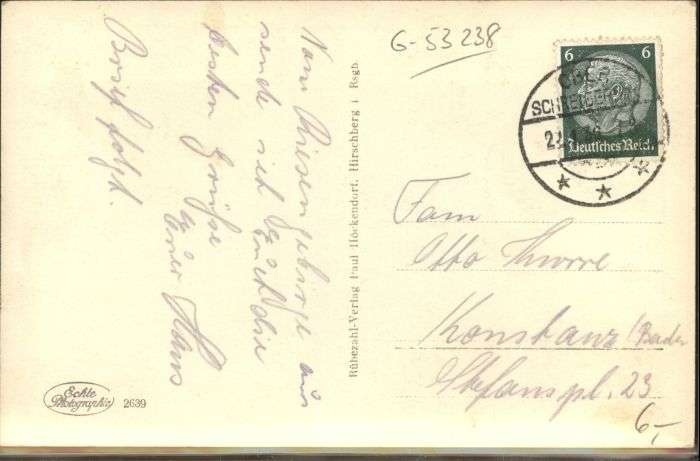 G-53238
6 6
OBER
SCHREIBERHAU
Deutsches Reich
Vom Riesengebirge aus
sende ich Euch die
besten Grüße
Euer Hans
Brief folgt.
Rübezahl-Verlag Paul Höckendorf, Hirschberg i. Rsgb
Fam
Otto
Konstanz/Baden
Stefanspl. 23
6,-
Echte
Photographie
2639